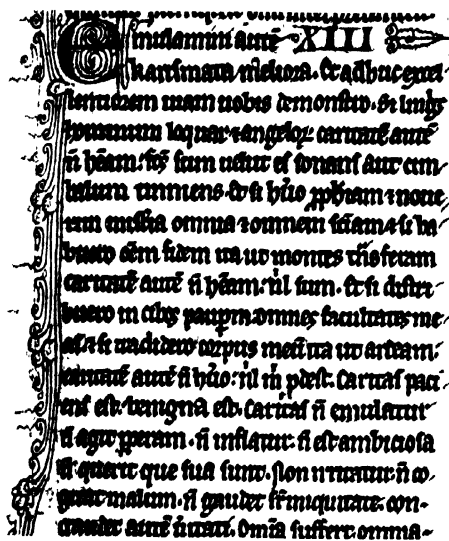 Emulamini autē XIII
karismata meliora. Et adhuc excel
lentiorem uiam uobis demonstro. Si lingīs
hominum loquar ⁊ angeloꝝ caritatē autē
n̄ hēam: fc̄s sum uelut es sonans aut cim
balum tinniens. Et si hūo ꝓph̄iam ⁊ noue
rim misteria omnia ⁊ omnem sc̄iam ⁊ si ha
buero om̄em fidem ita ut montes trāsferam
caritatē autē n̄ hēam: nil sum. Et si distri
buero in cibos pauꝑum omnes facultates me
as ⁊ si tradidero corpus meū ita ut ardeam:
caritatē autē n̄ hūo: nil m̄ pdest. Caritas paci
ens est. benigna est. Caritas n̄ emulatur
n̄ agit ꝑperam. n̄ inflatur. n̄ est ambiciosa
n̄ querit que sua sunt. Non irritatur. n̄ co
gitat malum. n̄ gaudet sr̄ iniquitate. con-
gaudet autē ūitati. Om̄ia suffert. omnia